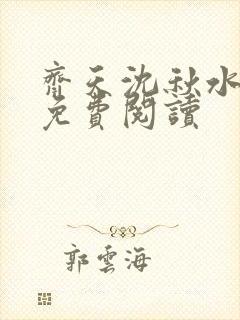 齊天沈秋水
免費閱讀
郭雲海